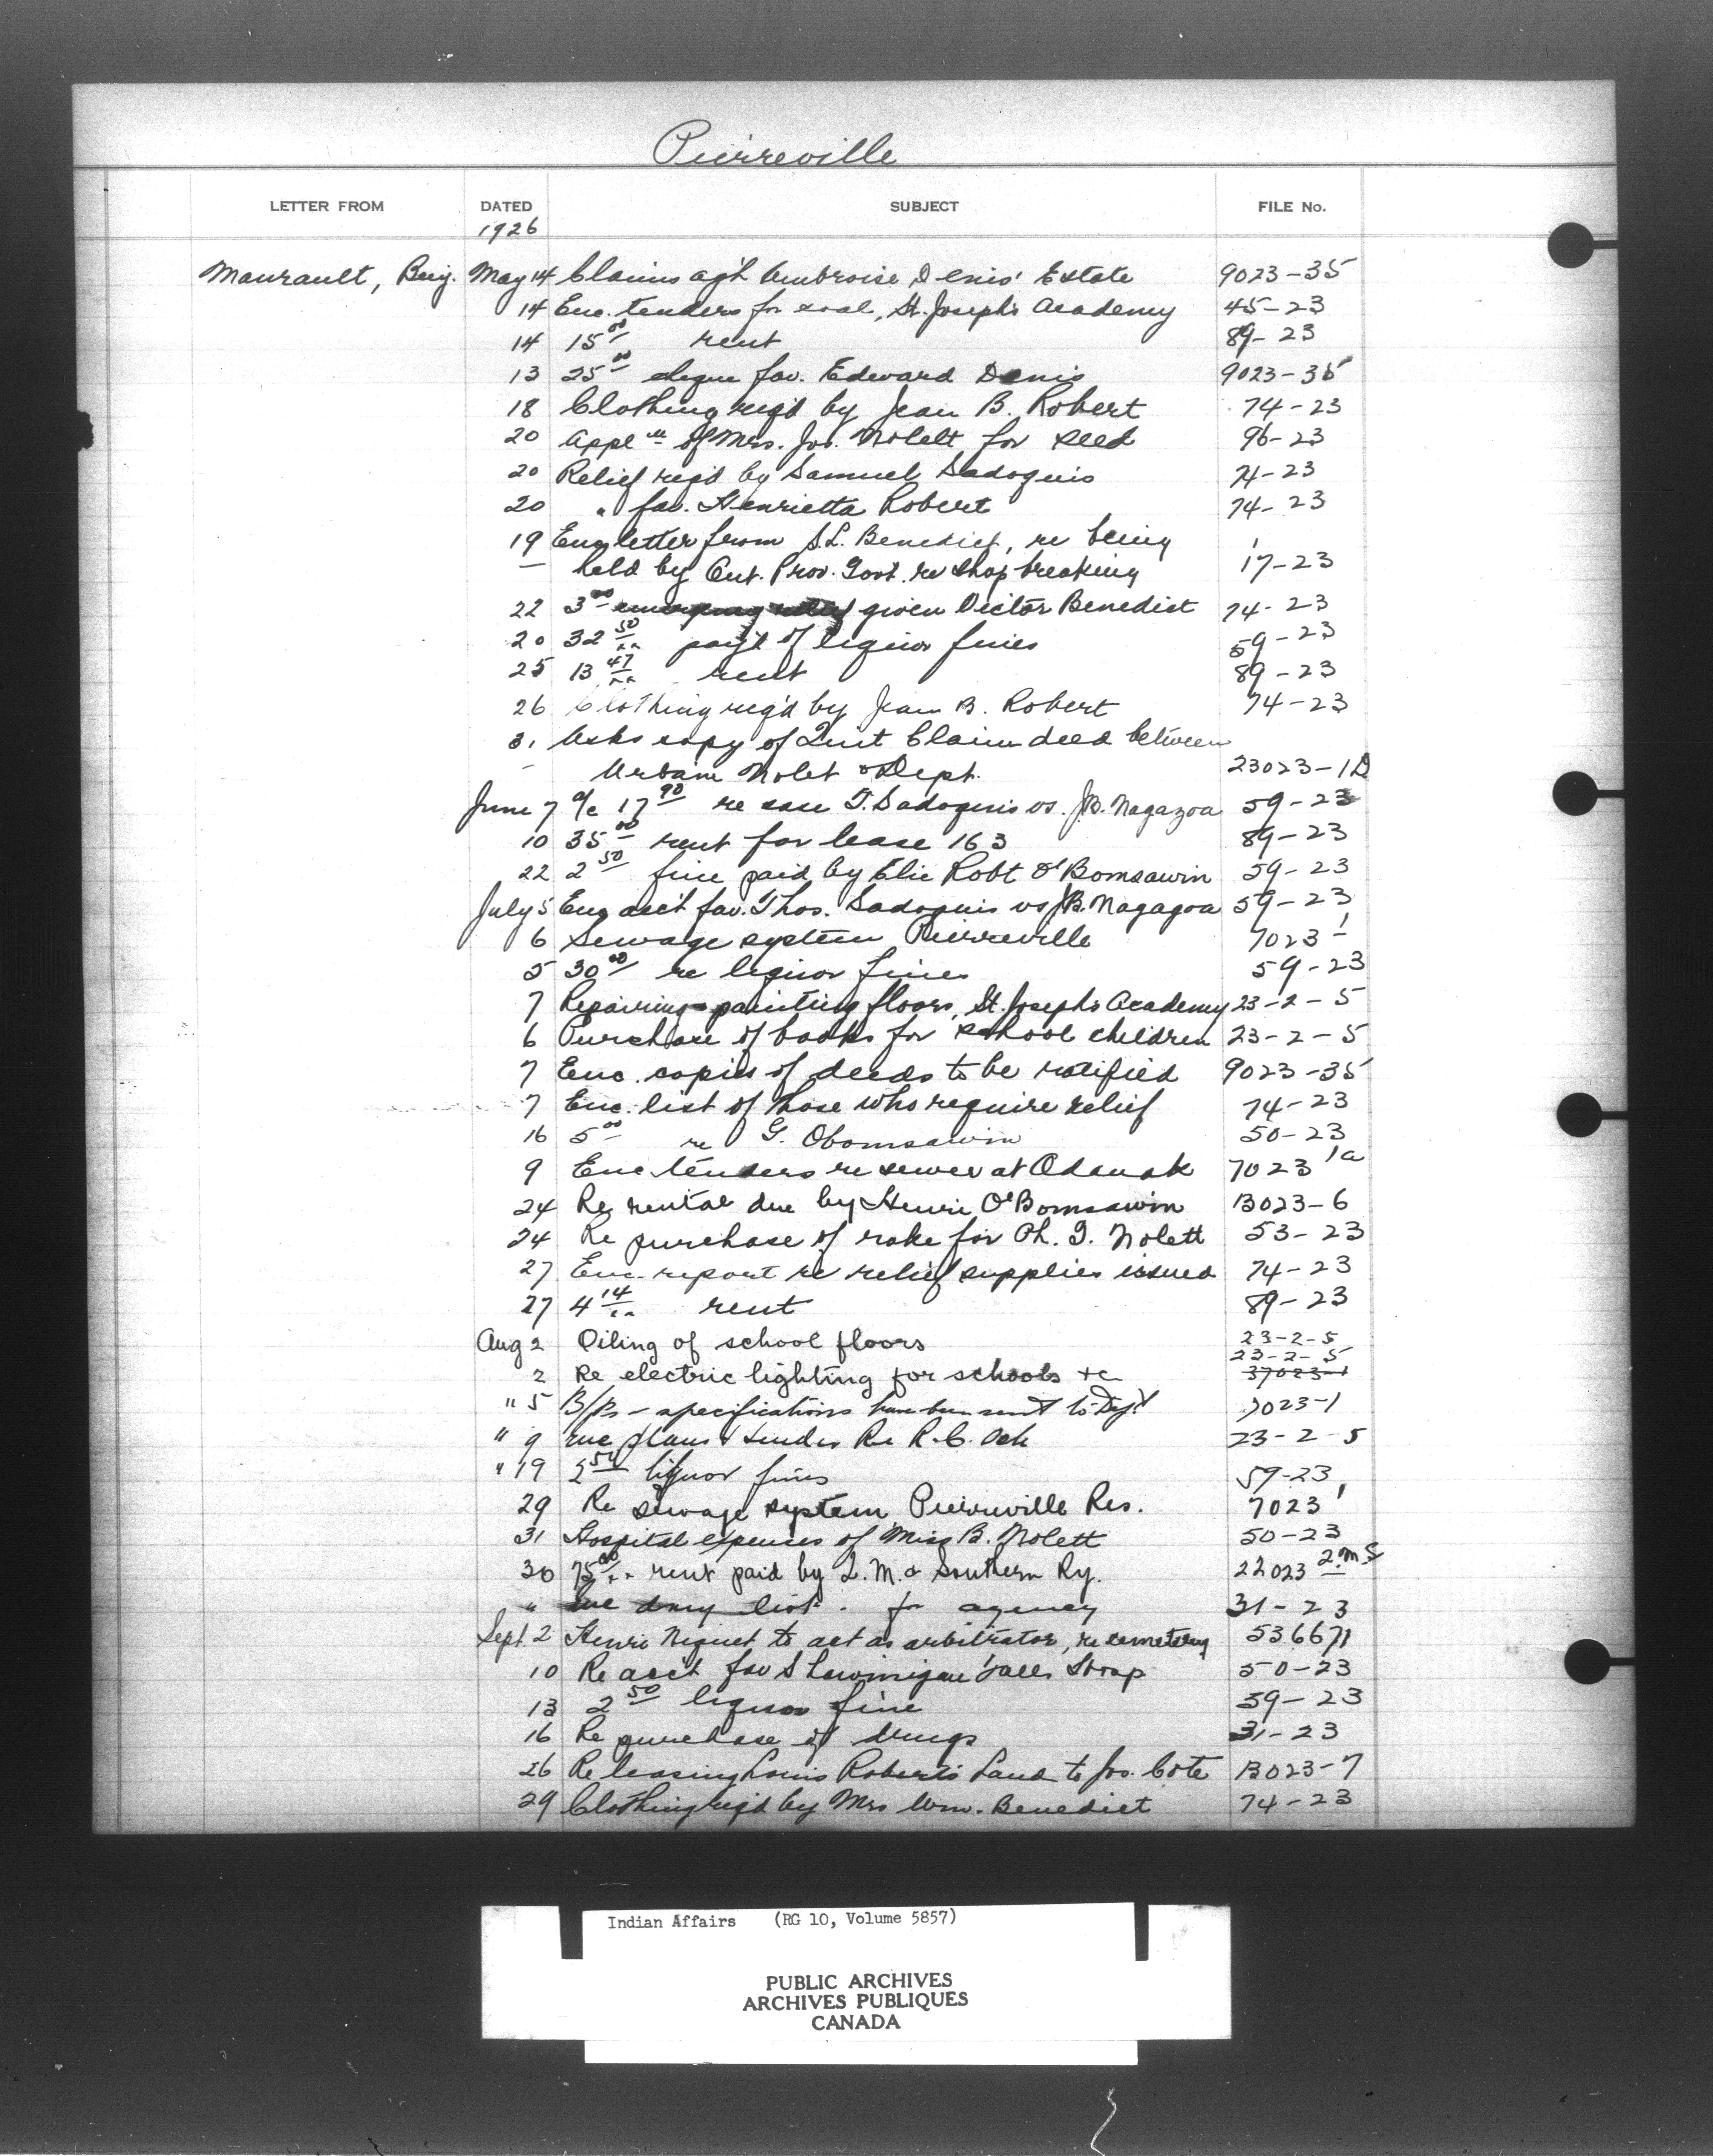 Pierreville
LETTER FROM DATED SUBJECT FILE No.
1926
Maurault, Benj. May 14 Claims ag'st Ambroise Denis' Estate 9023-35
14 Enc. tenders for coal, St. Joseph's Academy 45-23
14 15 00 rent 89-23
13 25 00 cheque fav. Edward Denis 9023-35
18 Clothing req'd by Jean B. Robert 74-23
20 Appl'n of Mrs. Jos. Nolett for seed 96-23
20 Relief req'd by Samuel Sadoquis 74-23
20 " fav. Henrietta Robert 74-23
19 Enc letter from S.L. Benedict, re being
held by Ont. Prov. Govt. re shop breaking 17-23
22 3 00 emergency relief given Victor Benedict 74-23
20 32 50 pay't of liquor fines 59-23
25 13 47 rent 89-23
26 Clothing req'd by Jean B. Robert 74-23
31 Asks copy of Quit Claim deed between
Urbain Nolet & Dept. 23023-1D
June 7 a/c 17 90 re case T. Sadoquis vs. J.B. Nagazoa 59-23
10 35 00 rent for lease 163 89-23
22 2 50 fine paid by Elie Robt O'Bomsawin 59-23
July 5 Enc acc't fav. Thos. Sadoquis vs J.B. Nagagoa 59-23
6 Sewage system Pierreville 7023-1
5 30 00 re liquor fines 59-23
7 Repairing & painting floors, St. Josephs Academy 23-2-5
6 Purchase of books for school children 23-2-5
7 Enc. copies of deeds to be ratified 9023-35
7 Enc. list of those who require relief 74-23
16 5 00 re G. Obomsawin 50-23
9 Enc tenders re sewer at Odanak 7023 1a
24 Re rental due by Henri O'Bomsawin 13023-6
24 Re purchase of rake for Ph. G. Nolett 53-23
27 Enc. report re relief supplies issued 74-23
27 4 14 rent 89-23
Aug 2 Oiling of school floors 23-2-5
23-2-5
2 Re electric lighting for schools &c 37023-1
" 5 B/Ps - specifications have been sent to Dept 7023-1
" 9 enc plans & tender Re R.C. Sch 23-2-5
" 19 2 50 liquor fines 59-23
29 Re sewage system Pierreville Res. 7023 1
31 Hospital expenses of Miss B. Nolett 50-23
30 75 00 rent paid by Q.M. & Southern Ry. 22023
" enc drug list - for agency 31-23
Sept. 2 Henri Niquet to act as arbitrator, re cemetery 536671
10 Re acc't fav Shawinigan Falls Hosp 50-23
13 2 50 liquor fine 59-23
16 Re purchase of drugs 31-23
26 Re leasing Louis Robert's Land to Jos. Cote 13023-7
29 Clothing req'd by Mrs Wm. Benedict 74-23
Indian Affairs (RG 10, Volume 5857)
PUBLIC ARCHIVES
ARCHIVES PUBLIQUES
CANADA